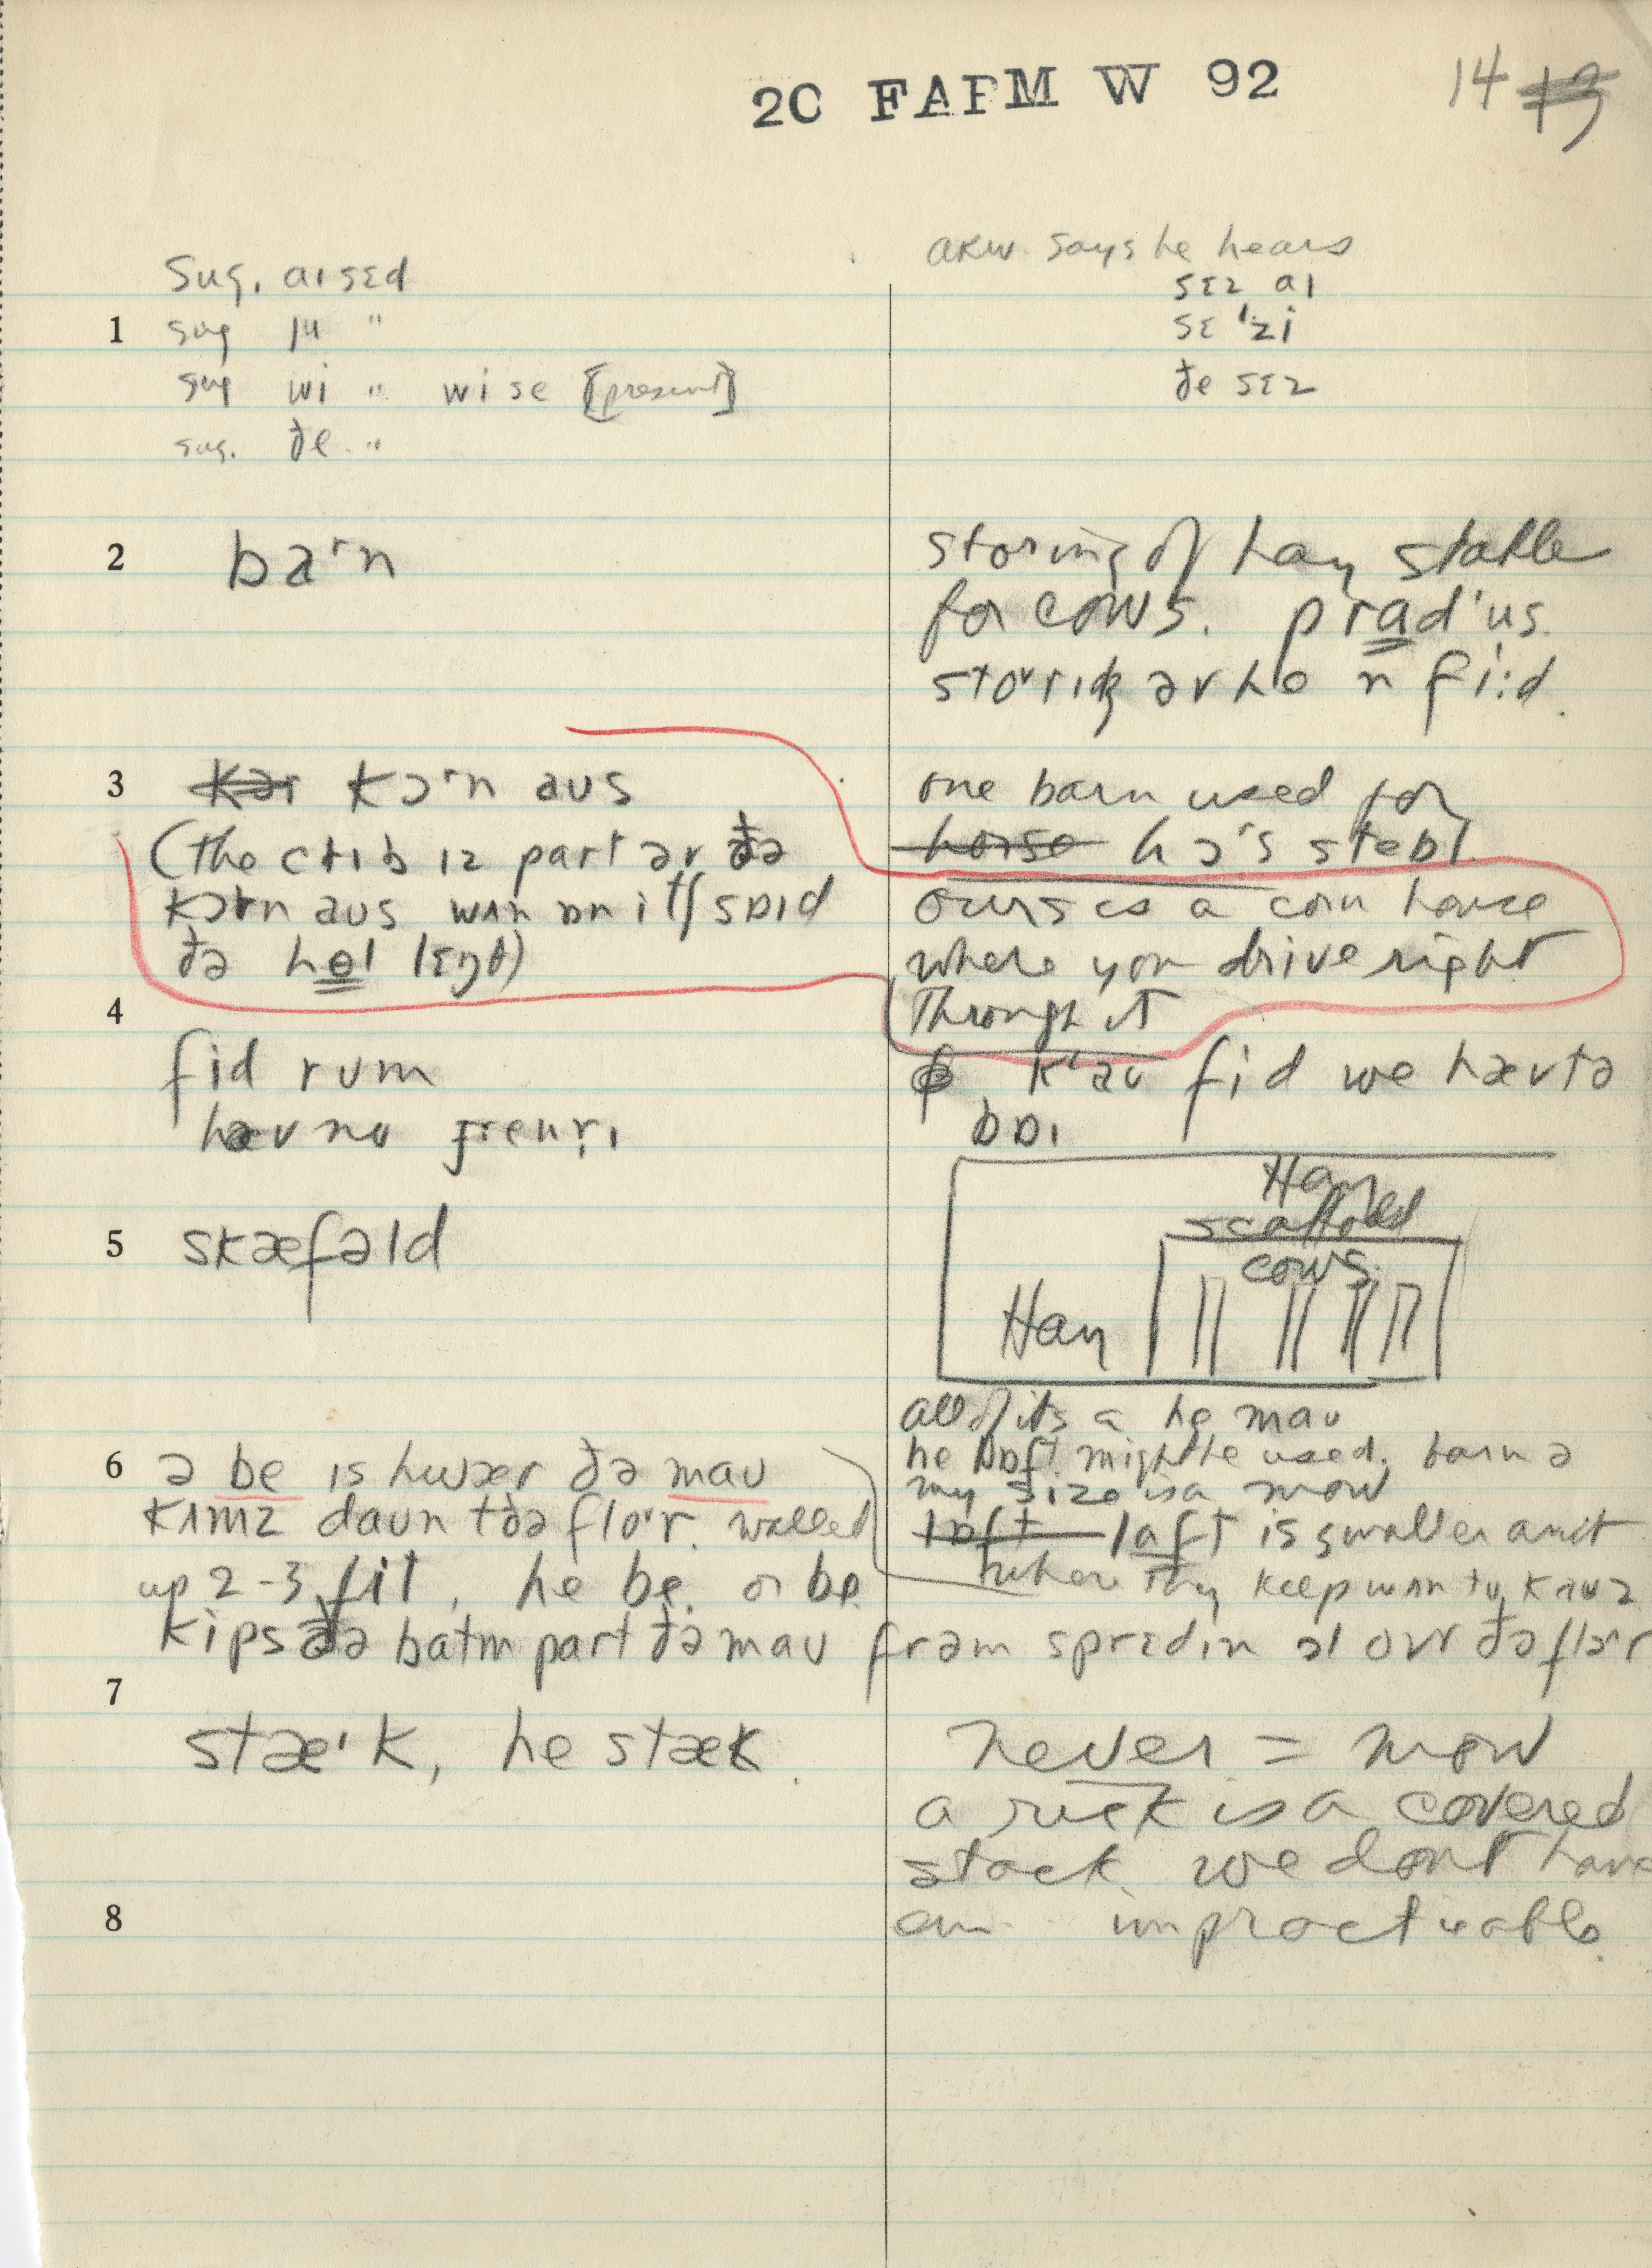 20 FARM W 92
14 13
Sug. aɪ sɛd
1 sug ju "
sug wi " wi se [present]
sug. ðe "
ARW. says he hears
sɛz aɪ
sɛ'zi
ðe sɛz
2 ba'n
storing of hay stable
for cows.
fi:d.
3 kɔ'n aus
(the crib ɪz part əv ðə
kɔrn aus wʌn ɒn itʃ sɒɪd
ðə hel lɛŋθ)
one barn used for
horse hɔ's stebl
ours is a corn house
where you drive right
through it
4
fid rum
hæv no
fid we hæv tə
bɒɪ
Hay
scaffold
cows
Hay
5 skæfəld
all of its a he mau
he lɒft might be used. barn ə
my size is a mow
lɒft laft is smaller amt
where they keep wʌn tu kauz
6 ə be is hwær ðə mau
kʌmz daun t ðə flo'r. walled
up 2-3 fit, he be. or be
kips ðə batm part ðə mau frəm sprɛdɪn ɔl ovr ðə flɔ'r
7
stæ'k, he stæk.
never = mow
a rick is a covered
stack. we don't have
em impracticable.
8